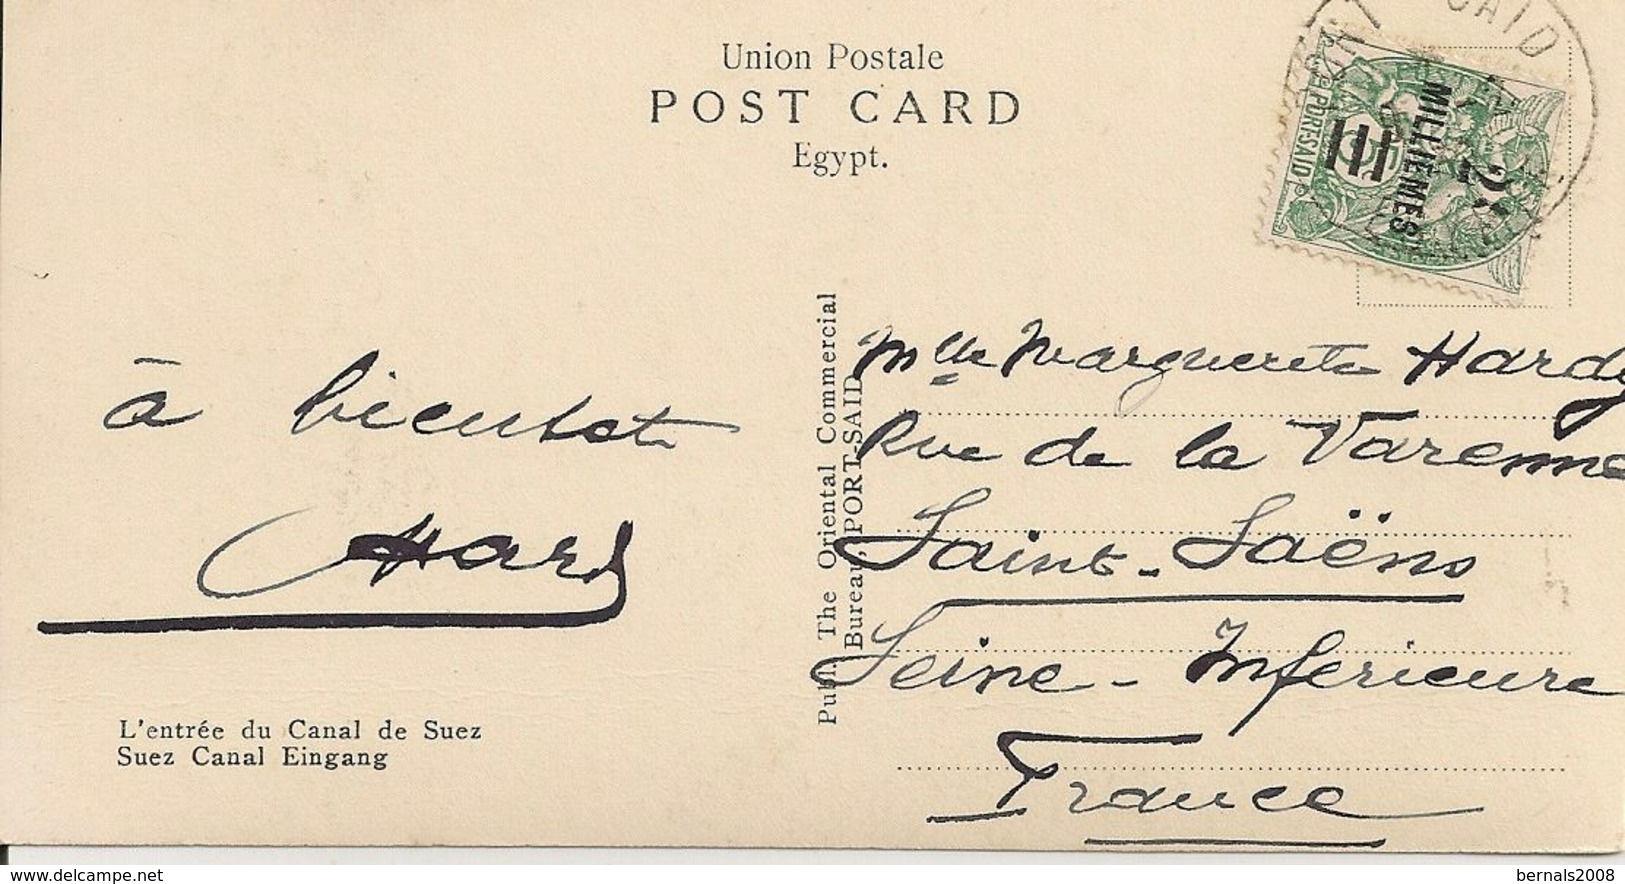 Union Postale
POST CARD
Egypt.
SAID
PORT-SAID
MILLIEMES
2
à bientot
Hardy
L'entrée du Canal de Suez
Suez Canal Eingang
Publ. The Oriental Commercial
Bureau, PORT-SAID
Mlle Marguerite Hardy
Rue de la Varenne
Saint-Saëns
Seine-Inferieure
France
delcampe.net
bernals2008